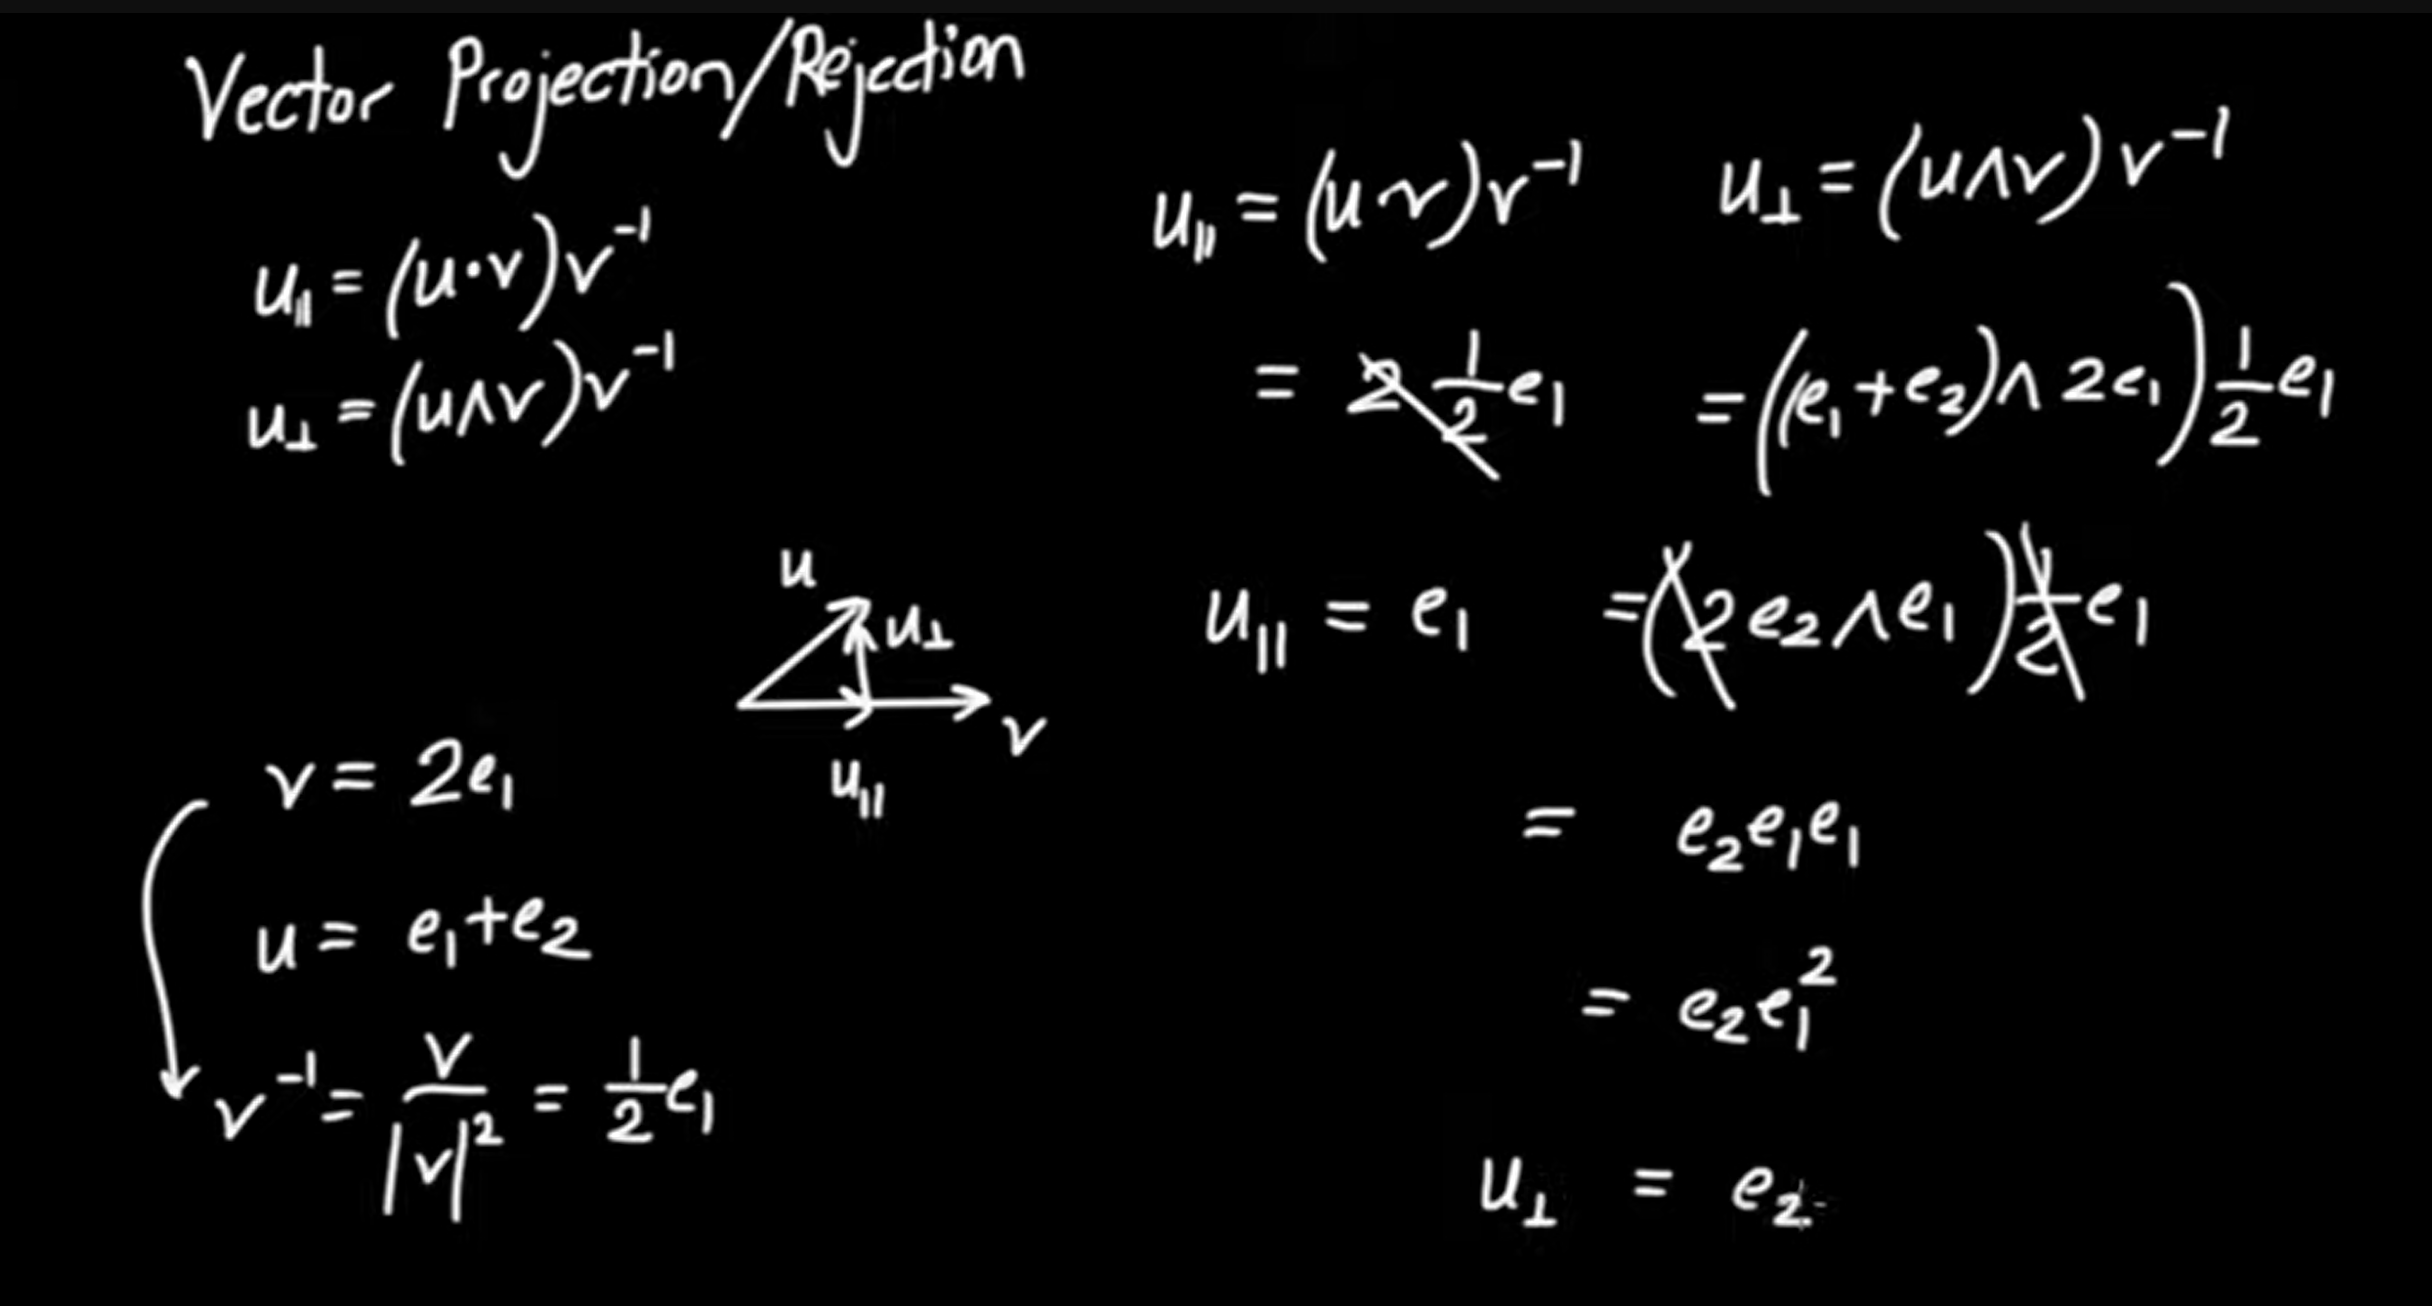 Vector Projection/Rejection
u∥ = (u·v)v⁻¹
u⊥ = (u∧v)v⁻¹
u
u⊥
v
u∥
v = 2e₁
u = e₁+e₂
v⁻¹ = v/|v|² = 1/2 e₁
u∥ = (u·v)v⁻¹
= 2 1/2 e₁
u∥ = e₁
u⊥ = (u∧v)v⁻¹
= ((e₁+e₂)∧2e₁) 1/2 e₁
= (2e₂∧e₁) 1/2 e₁
= e₂e₁e₁
= e₂e₁²
u⊥ = e₂